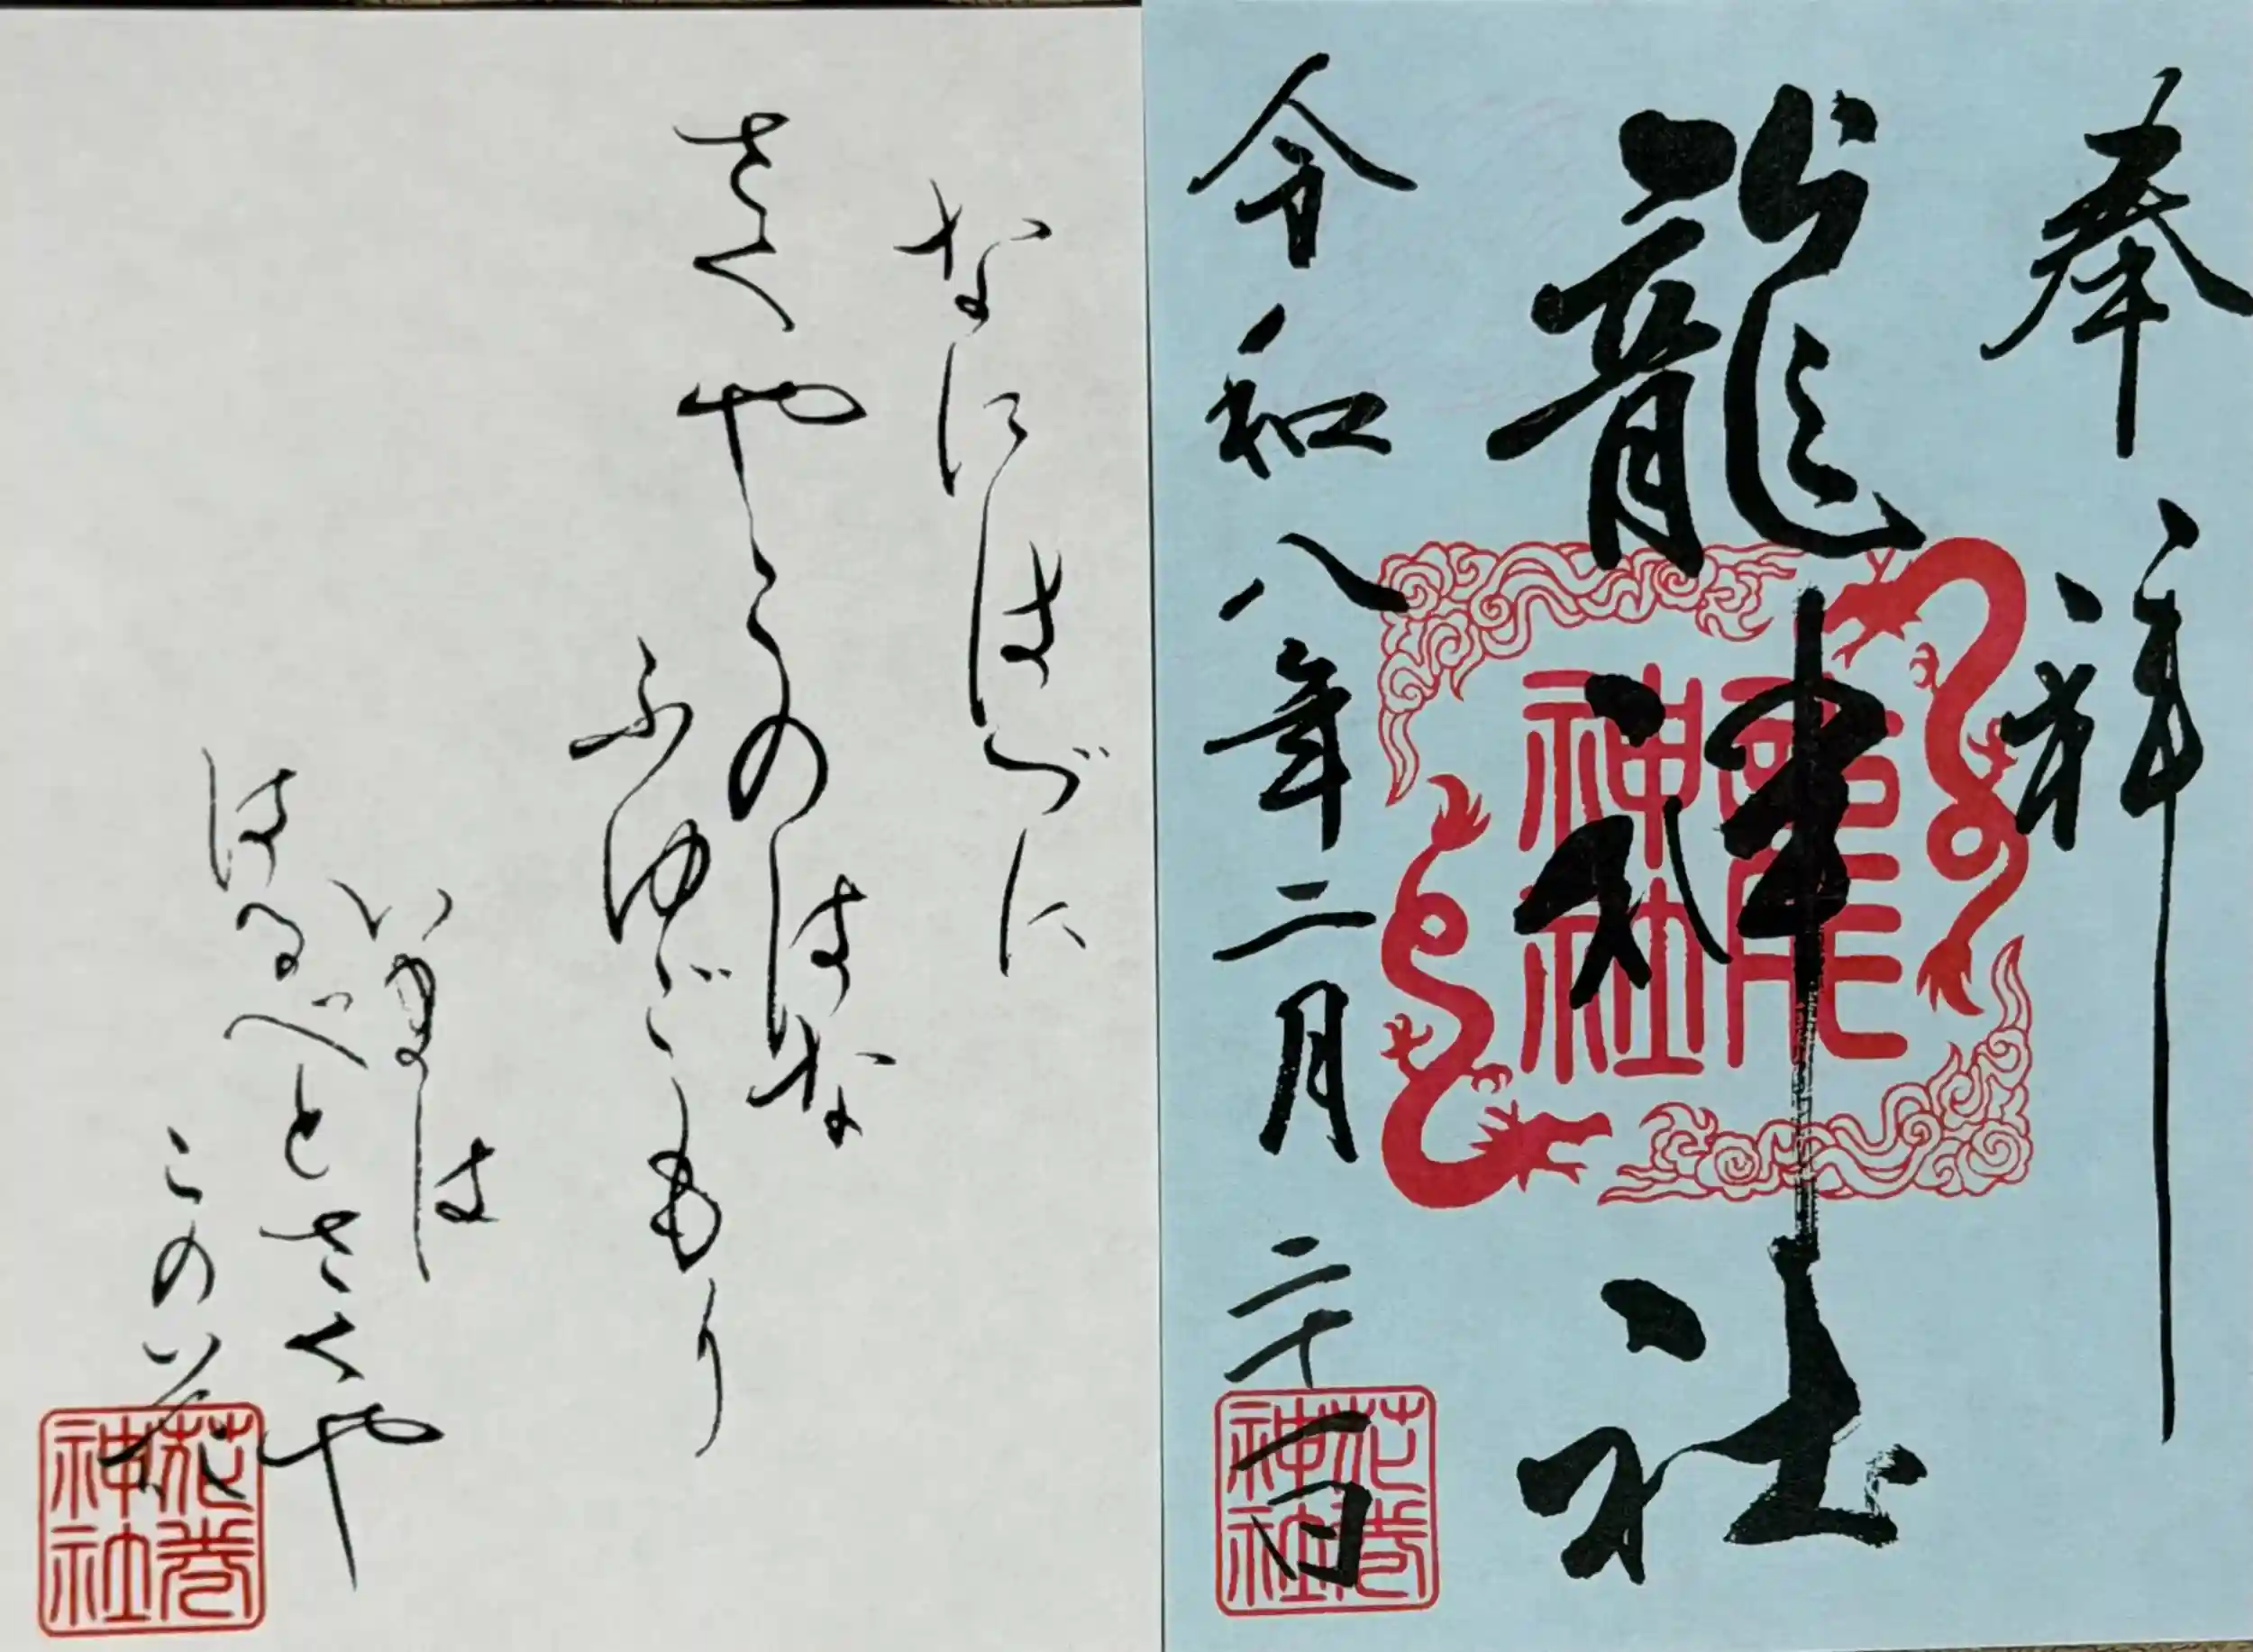 奉祥
龍神社
龍神社
令和八年二月二十一日
花巻神社
なにはづに
さくやこのはな
ふゆごもり
いまは
はるべとさくや
この花
花巻神社